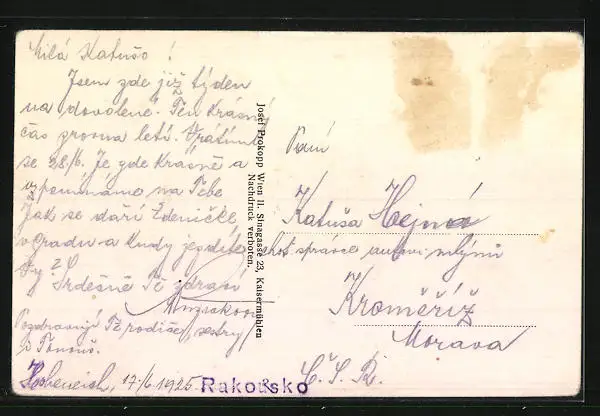 Milá Katušo!
Jsem zde již týden
na dovolené. Ten krásný
čas zrovna letí. Vrátíme
se 28./6. Je zde krásně a
vzpomínáme na Tebe
Jak se daří Zdeničke
v Gradu a kudy jezdíte
Ty?
Srdečně Tě zdraví
Pozdravují Tě rodiče, sestry
Hoheneich, 17./6. 1925
Rakousko
Josef Prokopp Wien II. Sinagasse 23, Kaisermühlen
Nachdruck verboten.
Paní
Katuša Hejná
choť správce autom. mlýnu
Kroměříž
Morava
Č. S. R.